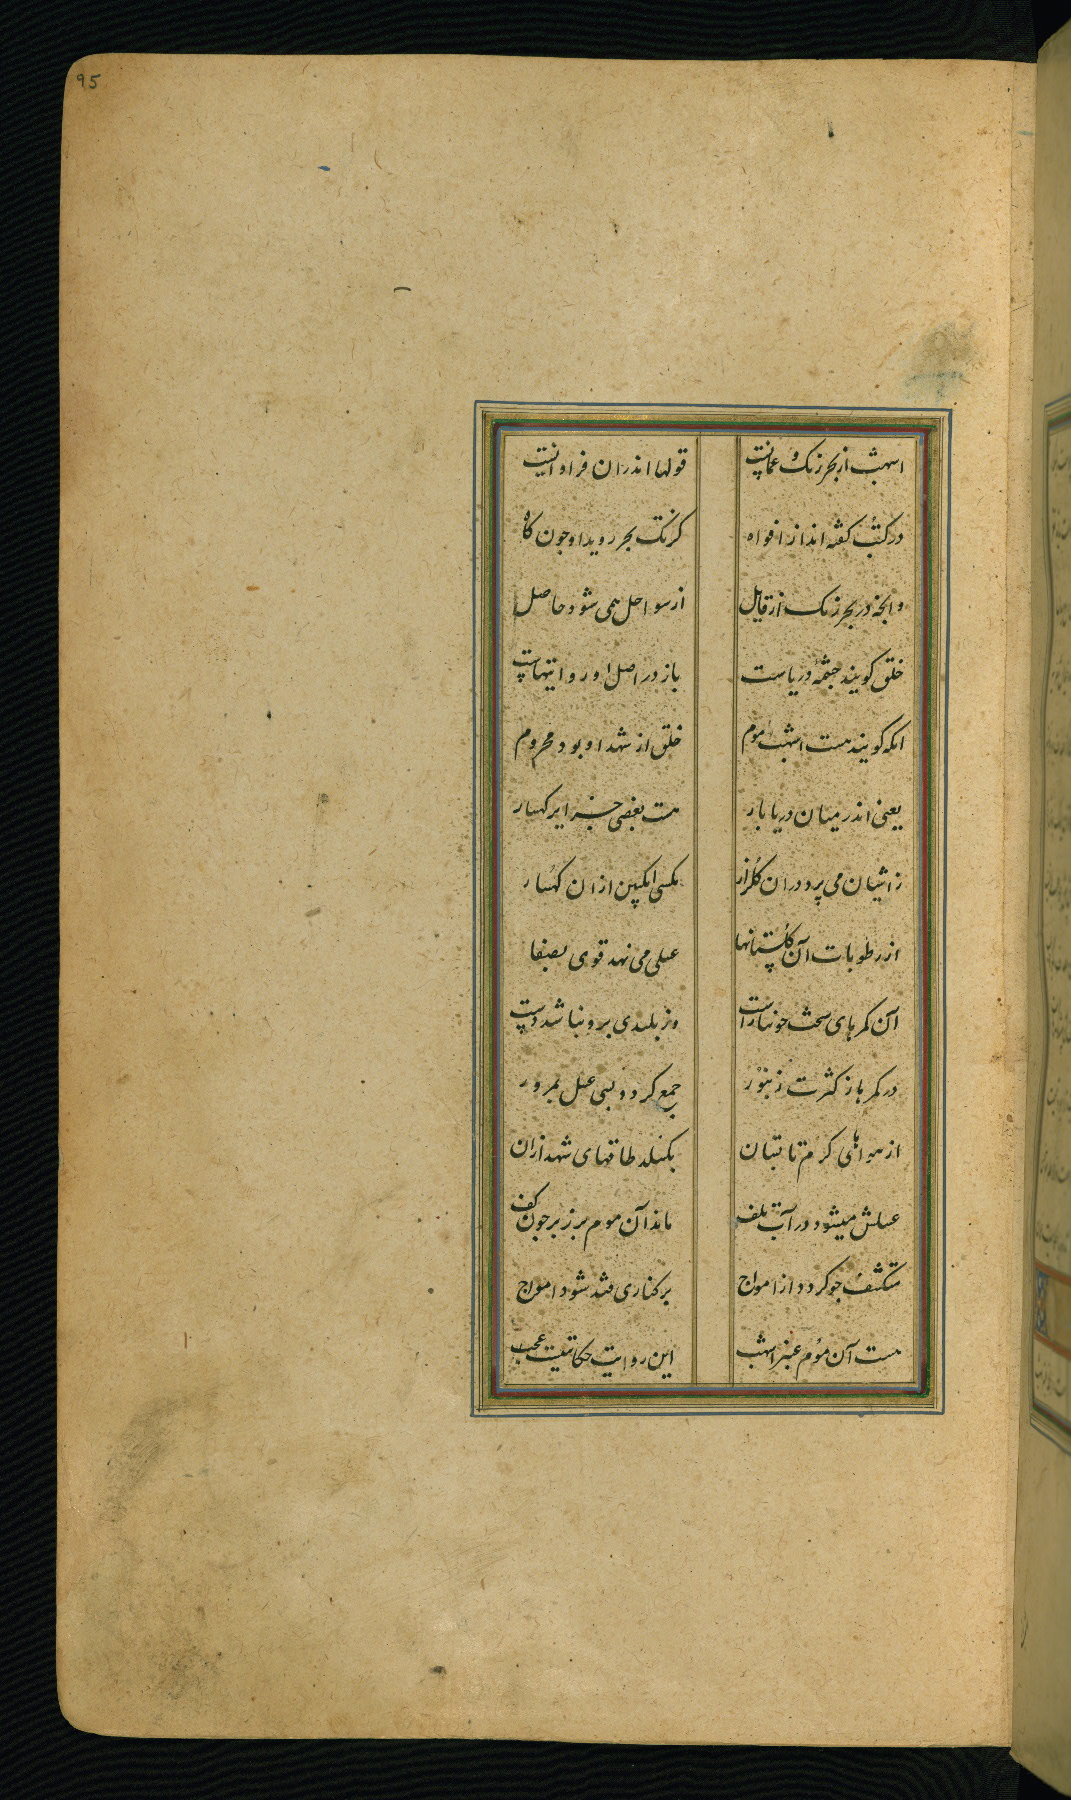 95
اشهب از بحر زنک و عمانیست قولها اندران فراوانیست
در کتب کفته اند از افواه کز تک بحر روید او چون کاه
وانچه در بحر زنک از قایل از سواحل همی شود حاصل
خلق کویند چشمهٔ دریاست باز در اصل او روایتهاست
انکه کویند هست اشهب موم خلق از شهد او بود محروم
یعنی اندر میان دریا بار هست بعضی جزایر کهسار
ز اشیان می پرد در ان کلزار مکس انکبین از ان کهسار
از رطوبات آن کلستانها عسلی می نهد قوی بصفا
آن کمرهای سخت چو نتاراست وز بلندی برو نباشد دست
در کمرها ز کثرت زنبور جمع کردد بسی عسل بمرور
از هواهای کرم تابستان بکسلد طاقهای شهد ازان
عسلش میشود در آب تلف ماند آن موم بر زبر چون کف
متکشف چو کردد از امواج بر کناری فتد شود امواج
هست آن موم عنبر اشهب این روایت حکایتیست عجب